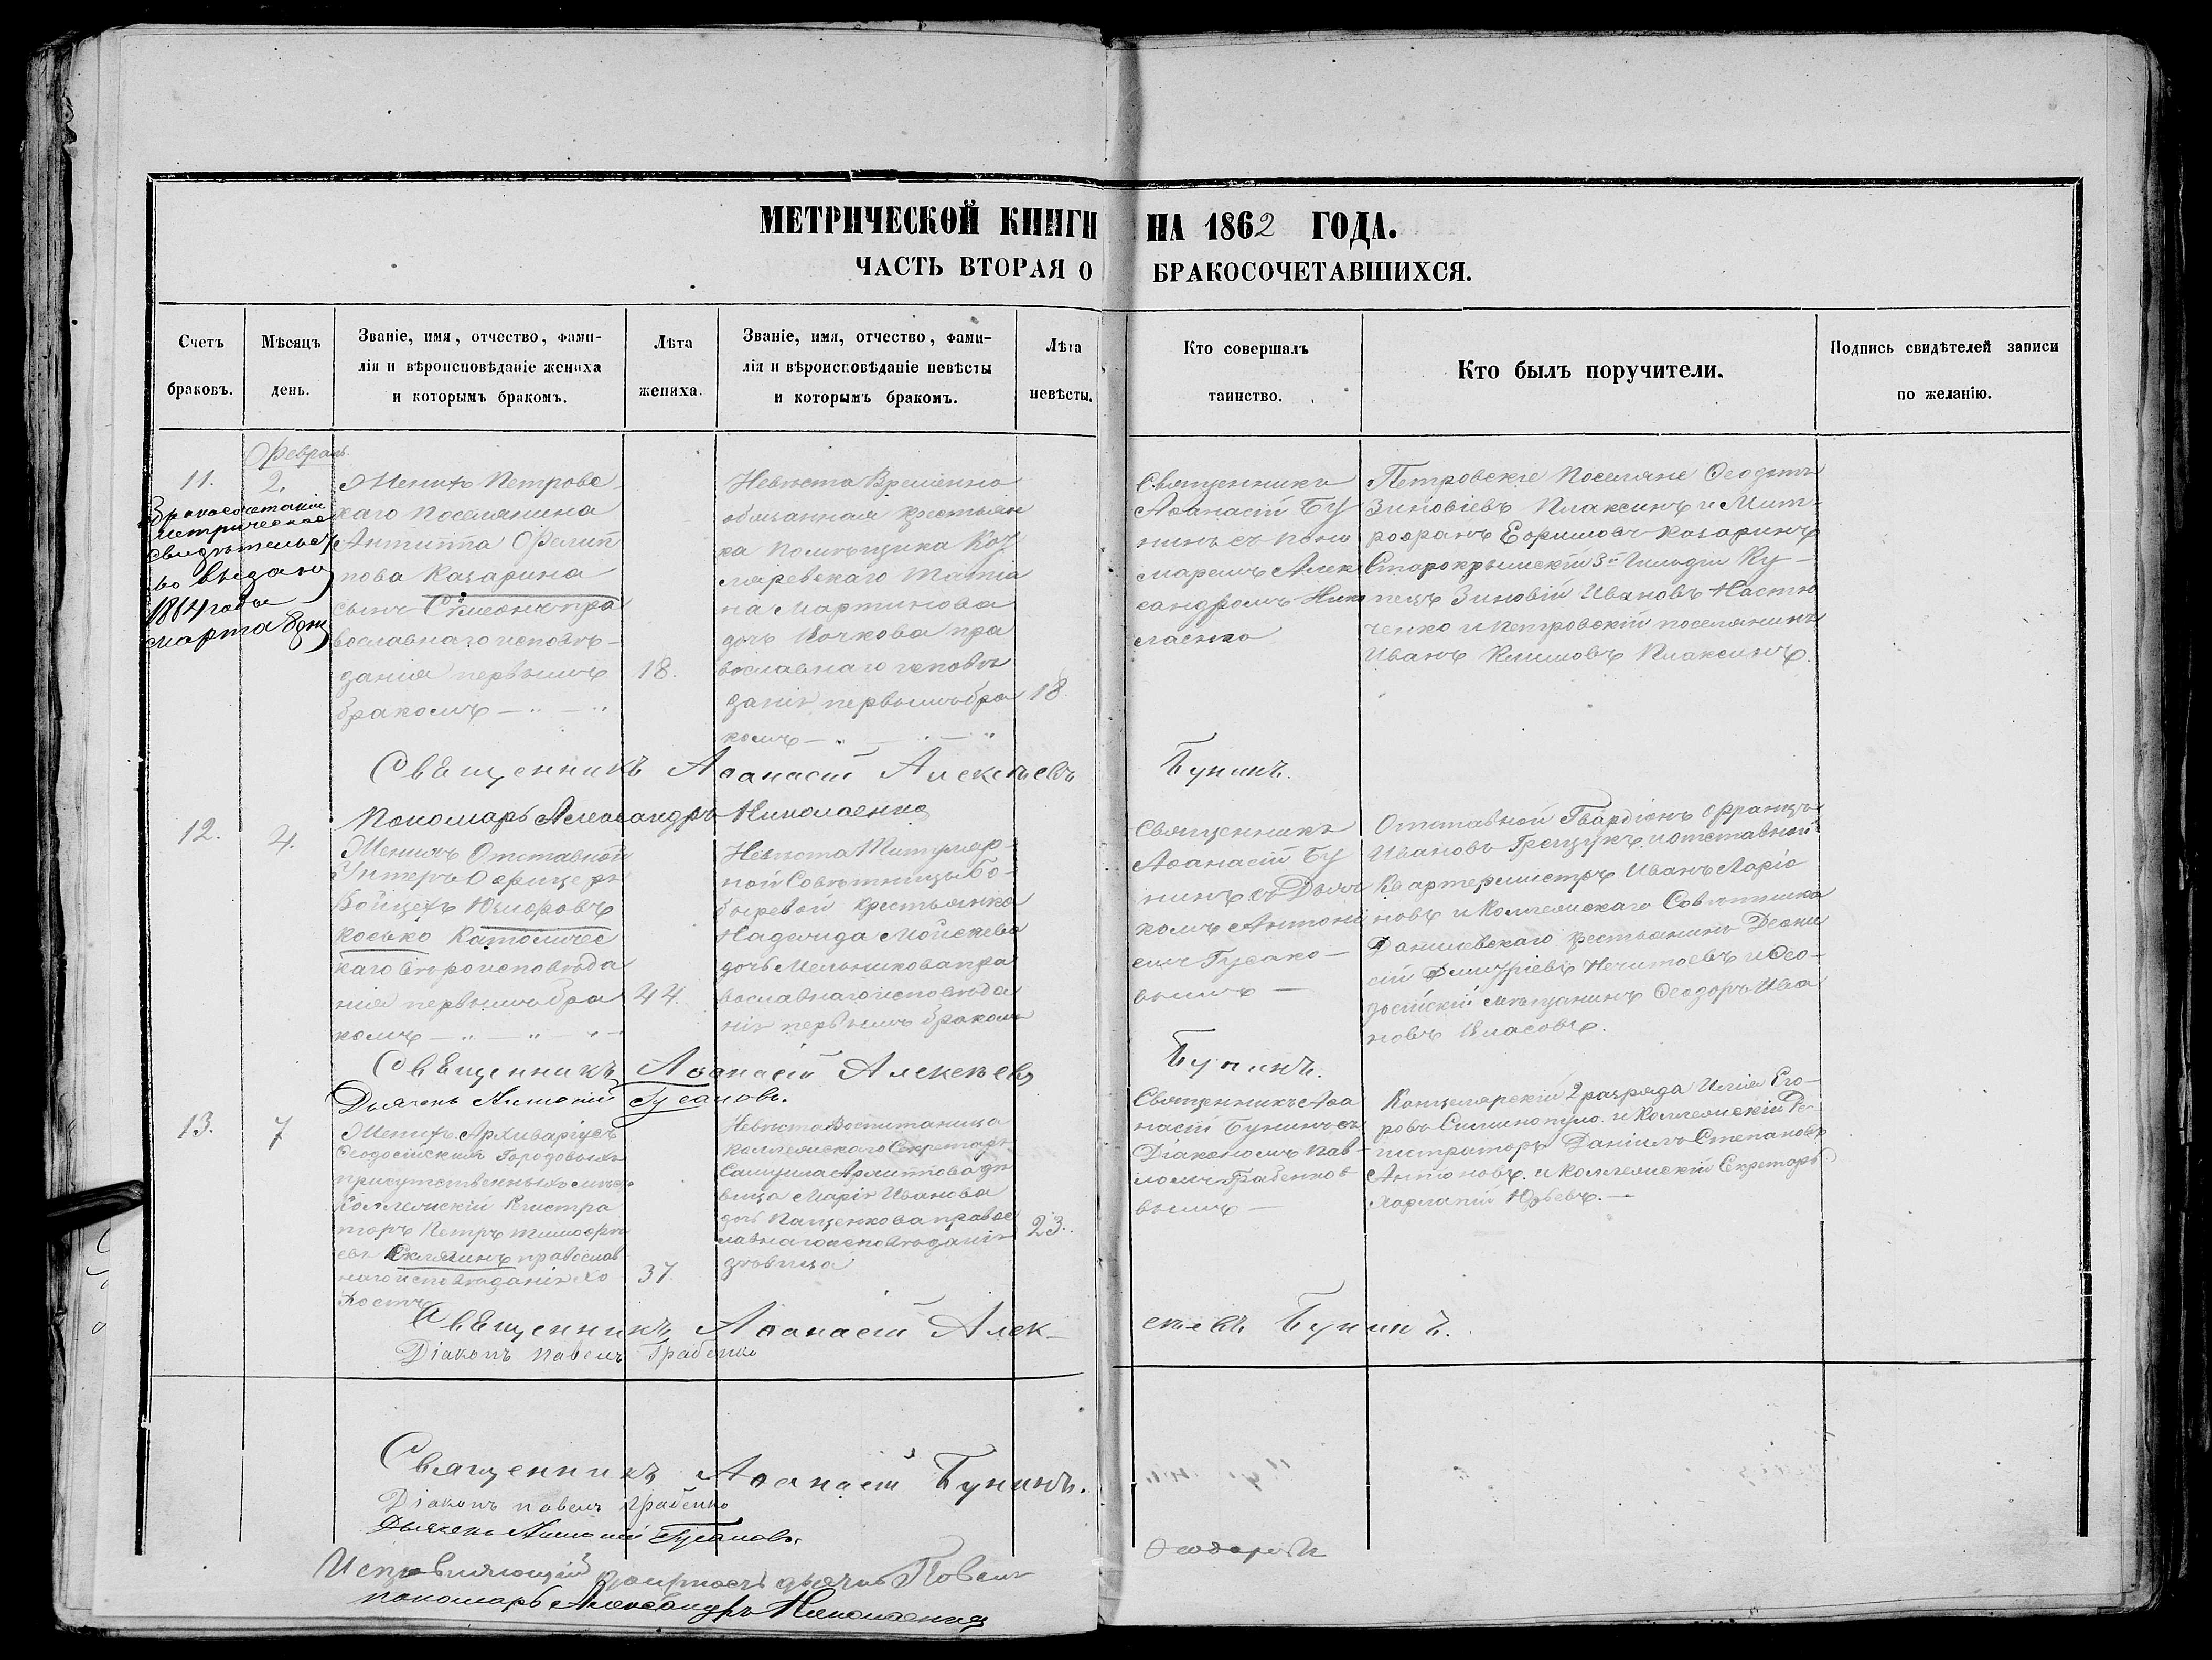 МЕТРИЧЕСКОЙ КНИГИ НА 1862 ГОДА.
ЧАСТЬ ВТОРАЯ О БРАКОСОЧЕТАВШИХСЯ.
Счетъ
браковъ.
Мѣсяцъ
день.
Званіе, имя, отчество, фами-
лія и вѣроисповѣданіе жениха
и которымъ бракомъ.
Лѣта
жениха.
Званіе, имя, отчество, фами-
лія и вѣроисповѣданіе невѣсты
и которымъ бракомъ.
Лѣта
невѣсты.
Кто совершалъ
таинство.
Кто былъ поручители.
Подпись свидѣтелей записи
по желанію.
Февраль
11.
2.
метрическое
свидѣтельст
во выдано
1864 года
марта
Женихъ Петровс
каго поселянина
Антиппа Филип
пова Казарина
сынъ Симеонъ пра
вославнаго исповѣ-
данія первымъ
бракомъ
18.
Невѣста Временно
обязанная крестьян
ка помѣщика
Татіа
на Мартинова
дочь пра
вославнаго исповѣ
данія первымъ бра
комъ
18.
Священникъ
Аѳанасій Бу
нинъ съ поно
маремъ Алек
сандромъ Нико
лаенко
Петровскіе поселяне Ѳеодотъ
Зиновіевъ Плаксинъ и Мит-
рофанъ Ефимовъ Казаринъ
Старокрымскій 3й Гильдіи Ку-
пецъ Зиновій Ивановъ Настю
ченко и петровскій поселянинъ
Иванъ Климовъ Плаксинъ.
Священникъ Аѳанасій Алексѣевъ Бунинъ.
Пономарь Александръ Николаенко
12.
4.
Женихъ Отставной
Унтеръ Офицеръ
Войцехъ
Косько Католичес
каго вѣроисповѣда
нія первымъ бра
комъ
44.
Невѣста Титуляр-
ной Совѣтницы Бо-
быревой крестьянка
Надежда Мойсеева
дочь Мельникова пра
вославнаго исповѣда
нія первымъ бракомъ
Священникъ
Аѳанасій Бу
нинъ съ Дьяч
комъ Антоні
емъ Гусако-
вымъ
Отставной Францъ
Ивановъ и отставной
Квартермистръ Иванъ Ларіо
новъ и Коллежскаго Совѣтника
Данилевскаго крестьянинъ Діони
сій Дмитріевъ и Ѳео-
досійскій мѣщанинъ Ѳеодоръ Ива
новъ Власовъ.
Священникъ Аѳанасій Алексѣевъ Бунинъ.
Дьячекъ Антоній Гусаковъ.
13.
7
Женихъ Архиваріусъ
Ѳеодосійскихъ Городовыхъ
присутственныхъ мѣстъ
Коллежскій Регистра
торъ Петръ Тимоѳѣ
евъ православ
наго исповѣданія хо
лостъ
37.
Невѣста Воспитаница
Коллежскаго Секретаря
дѣ
вица Марія Иванова
дочь Пащенкова правос
лавнаго исповѣданія
дѣвица
23.
Священникъ Аѳа
насій Бунинъ съ
Діакономъ Пав-
ломъ Грабенков
вымъ
Канцелярскій 2 разряда Илія Его-
ровъ и Коллежскій Ре-
гистраторъ Даніилъ Степановъ
Антоновъ и Коллежскій Секретарь
Харлапій Юрьевъ.
Священникъ Аѳанасій Алек-
сѣевъ Бунинъ.
Діаконъ Павелъ Грабенко
Священникъ Аѳанасій Бунинъ.
Діаконъ Павелъ Грабенко
Дьячекъ Антоній Гусаковъ.
Исправляющій должность дьячка Павелъ
пономарь Александръ Николаенко